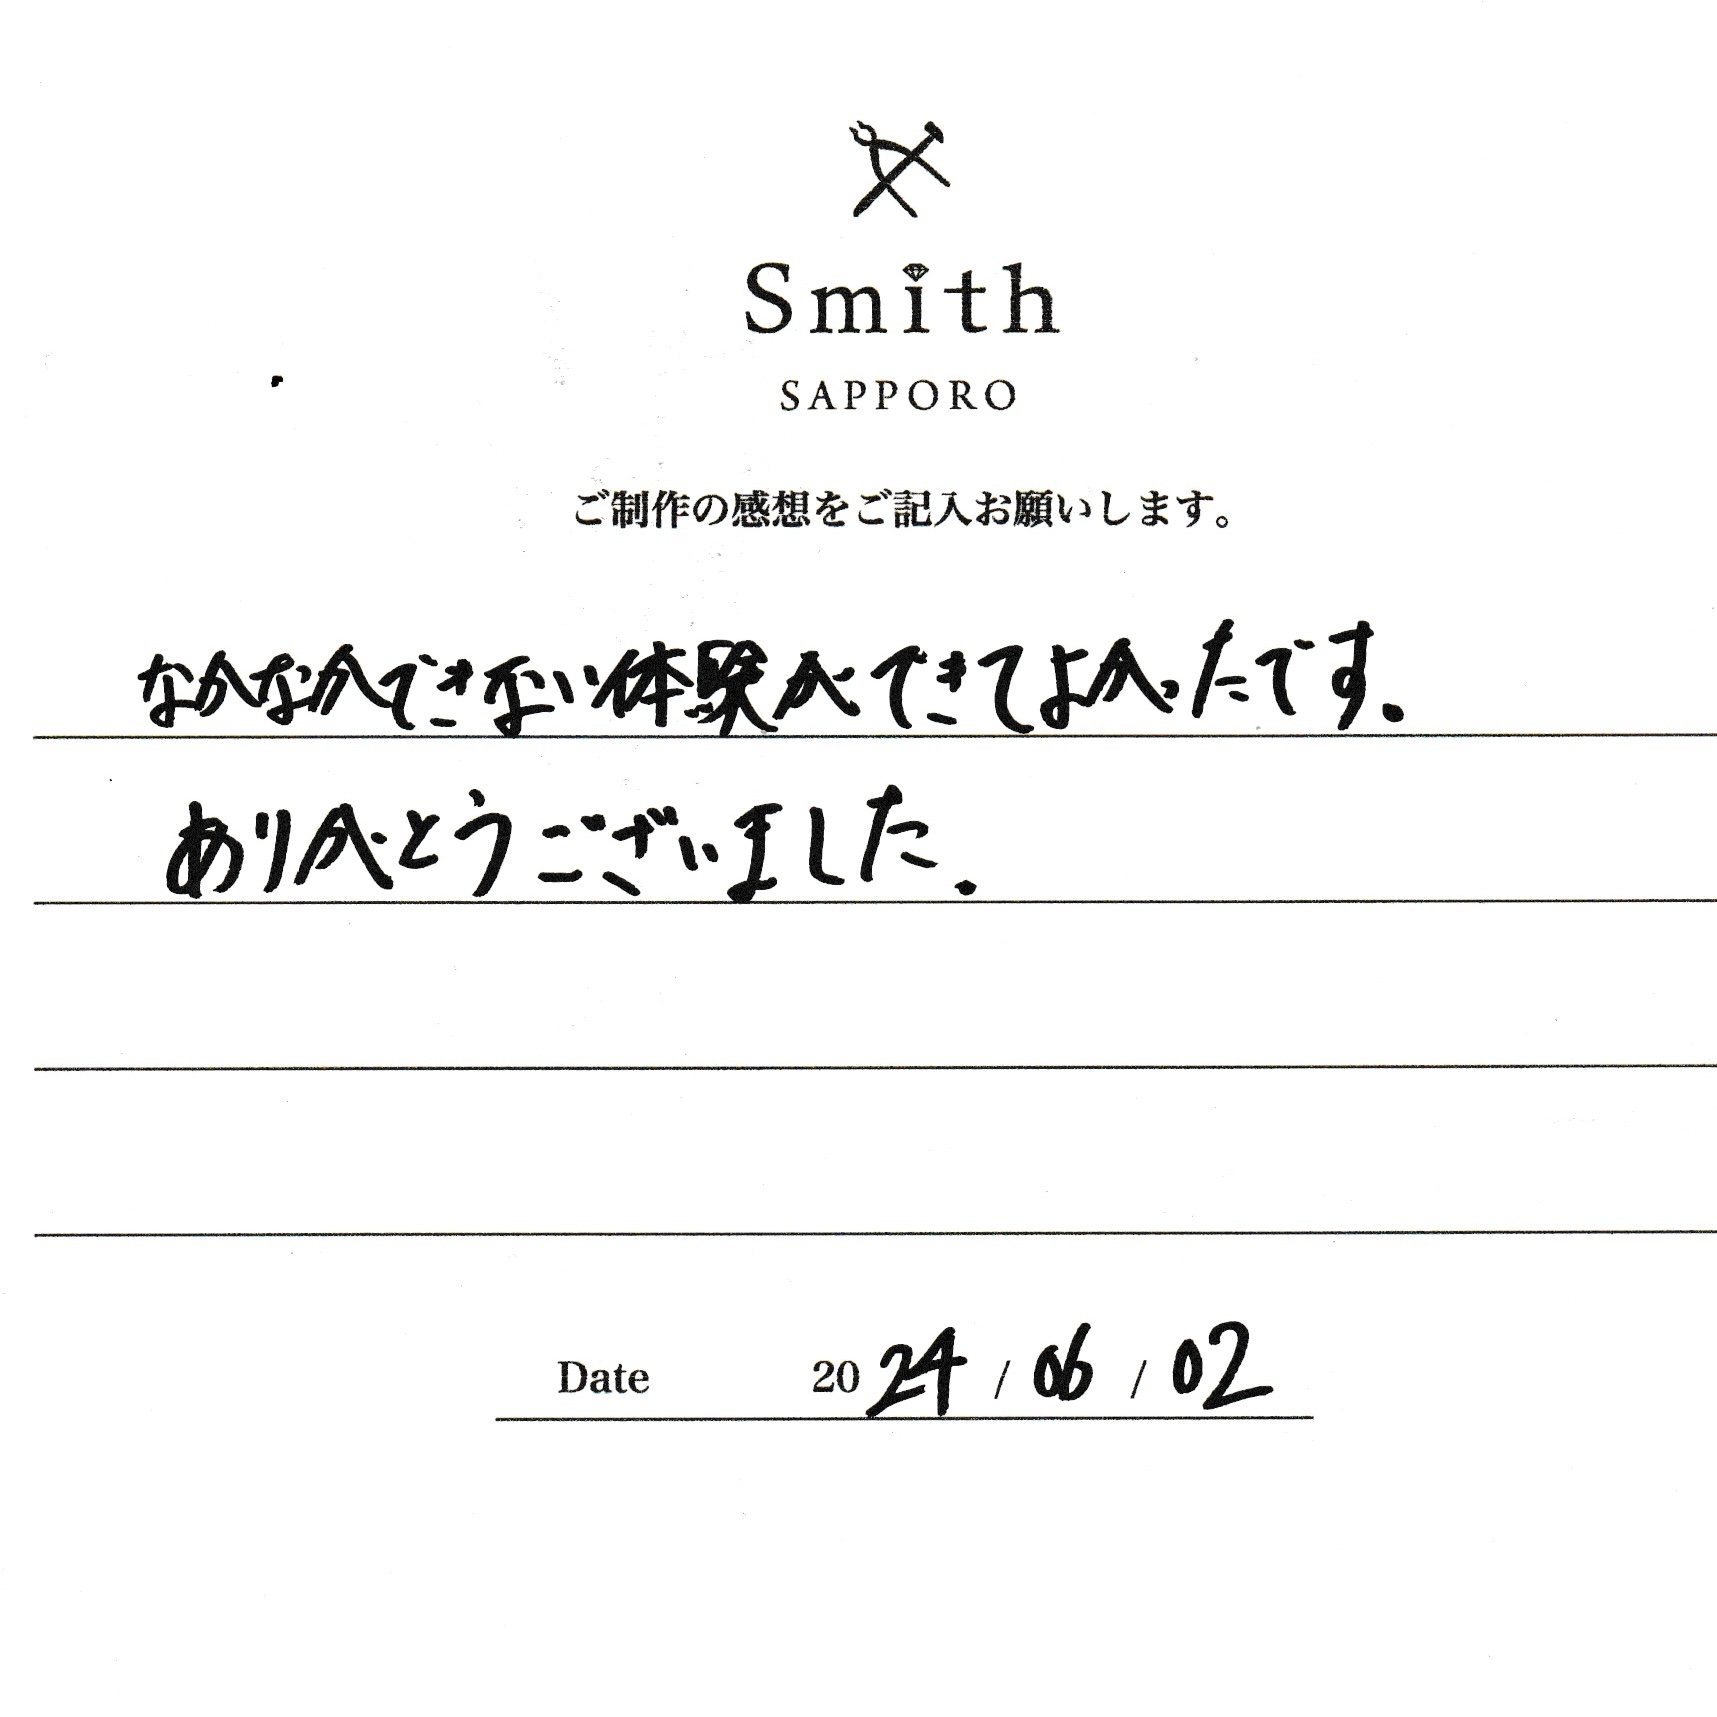 Smith
SAPPORO
ご制作の感想をご記入お願いします。
なかなかできない体験ができてよかったです.
ありがとうございました.
Date 2024 / 06 / 02